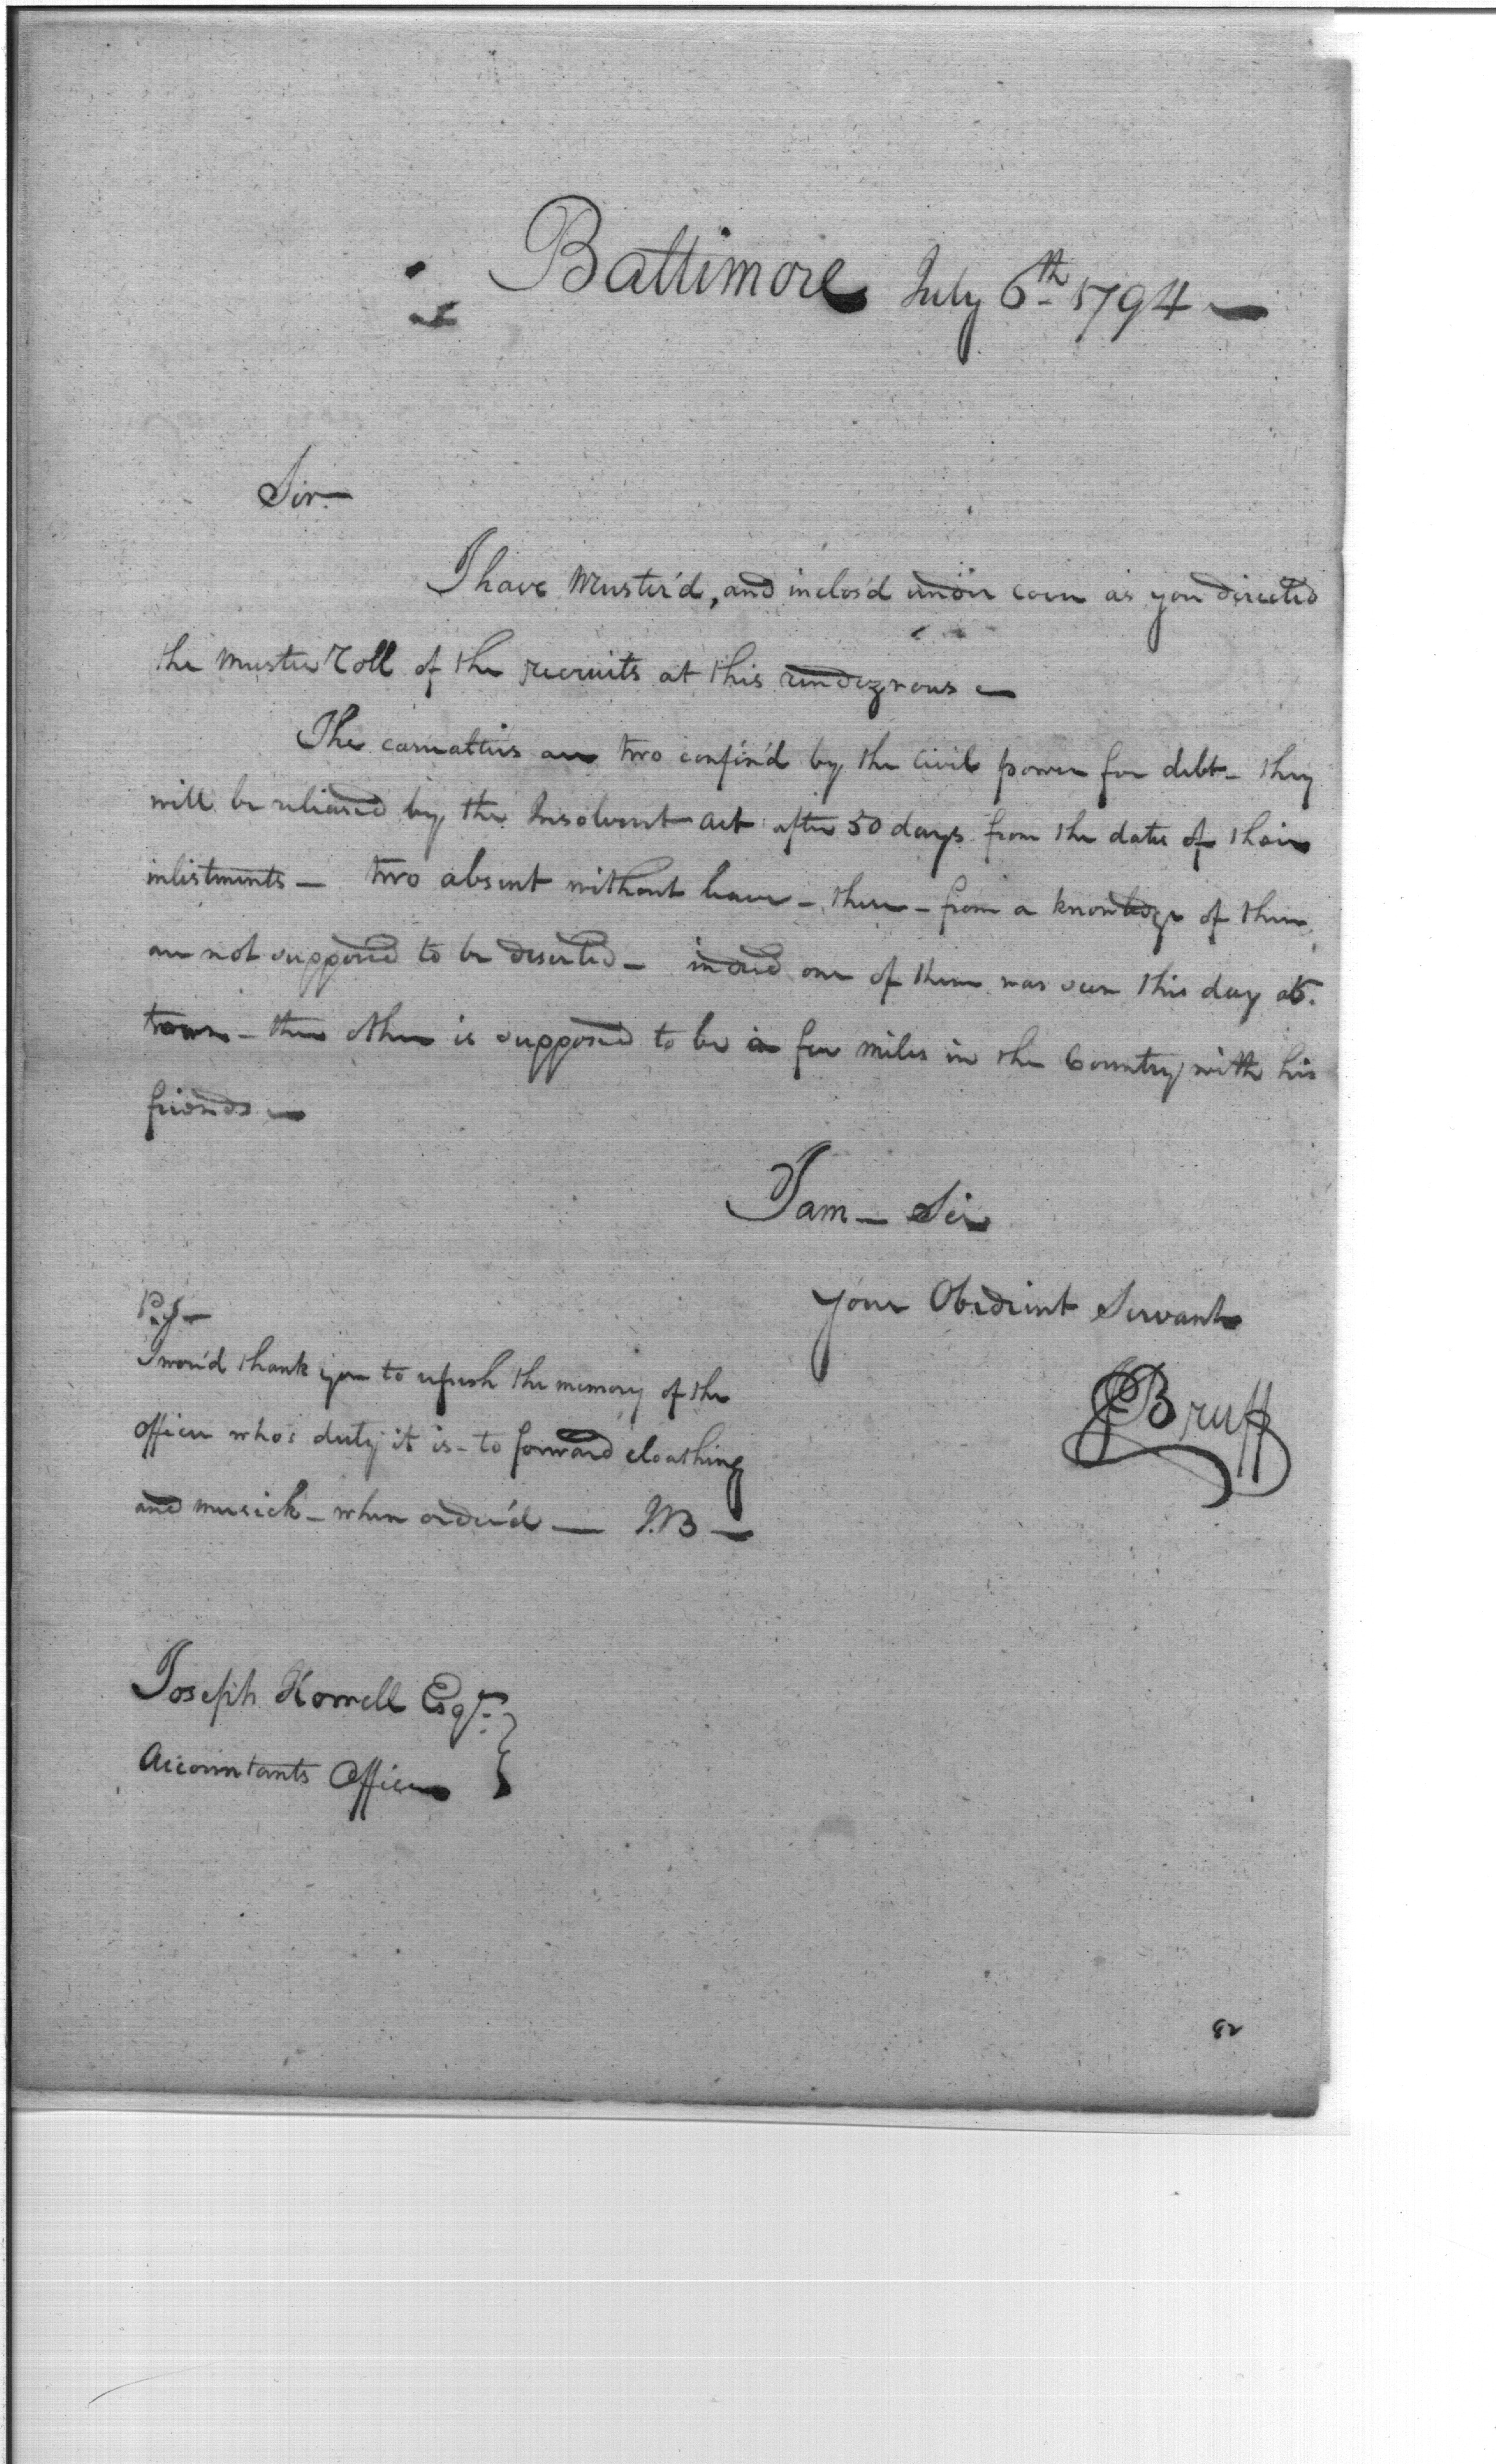 Baltimore July 6th 1794 —
Sir —
I have Muster'd, and inclos'd under cover as you directed
the Muster Roll of the recruits at this rendezvous —
The casualties are two confin'd by the Civil power for debt — they
will be releas'd by the Insolvent Act after 50 days from the date of their
inlistments — two absent without leave — these — from a knowledge of them,
are not supposed to be deserted — indeed one of them was seen this day at
town — the other is supposed to be a few miles in the Country with his
friends —
I am — Sir
your Obedient Servant
JBruff
P.S —
I wou'd thank you to refresh the memory of the
officer who's duty it is — to forward cloathing
and musick — when order'd — J.B —
Joseph Howell Esqr.
Accountants Office
82